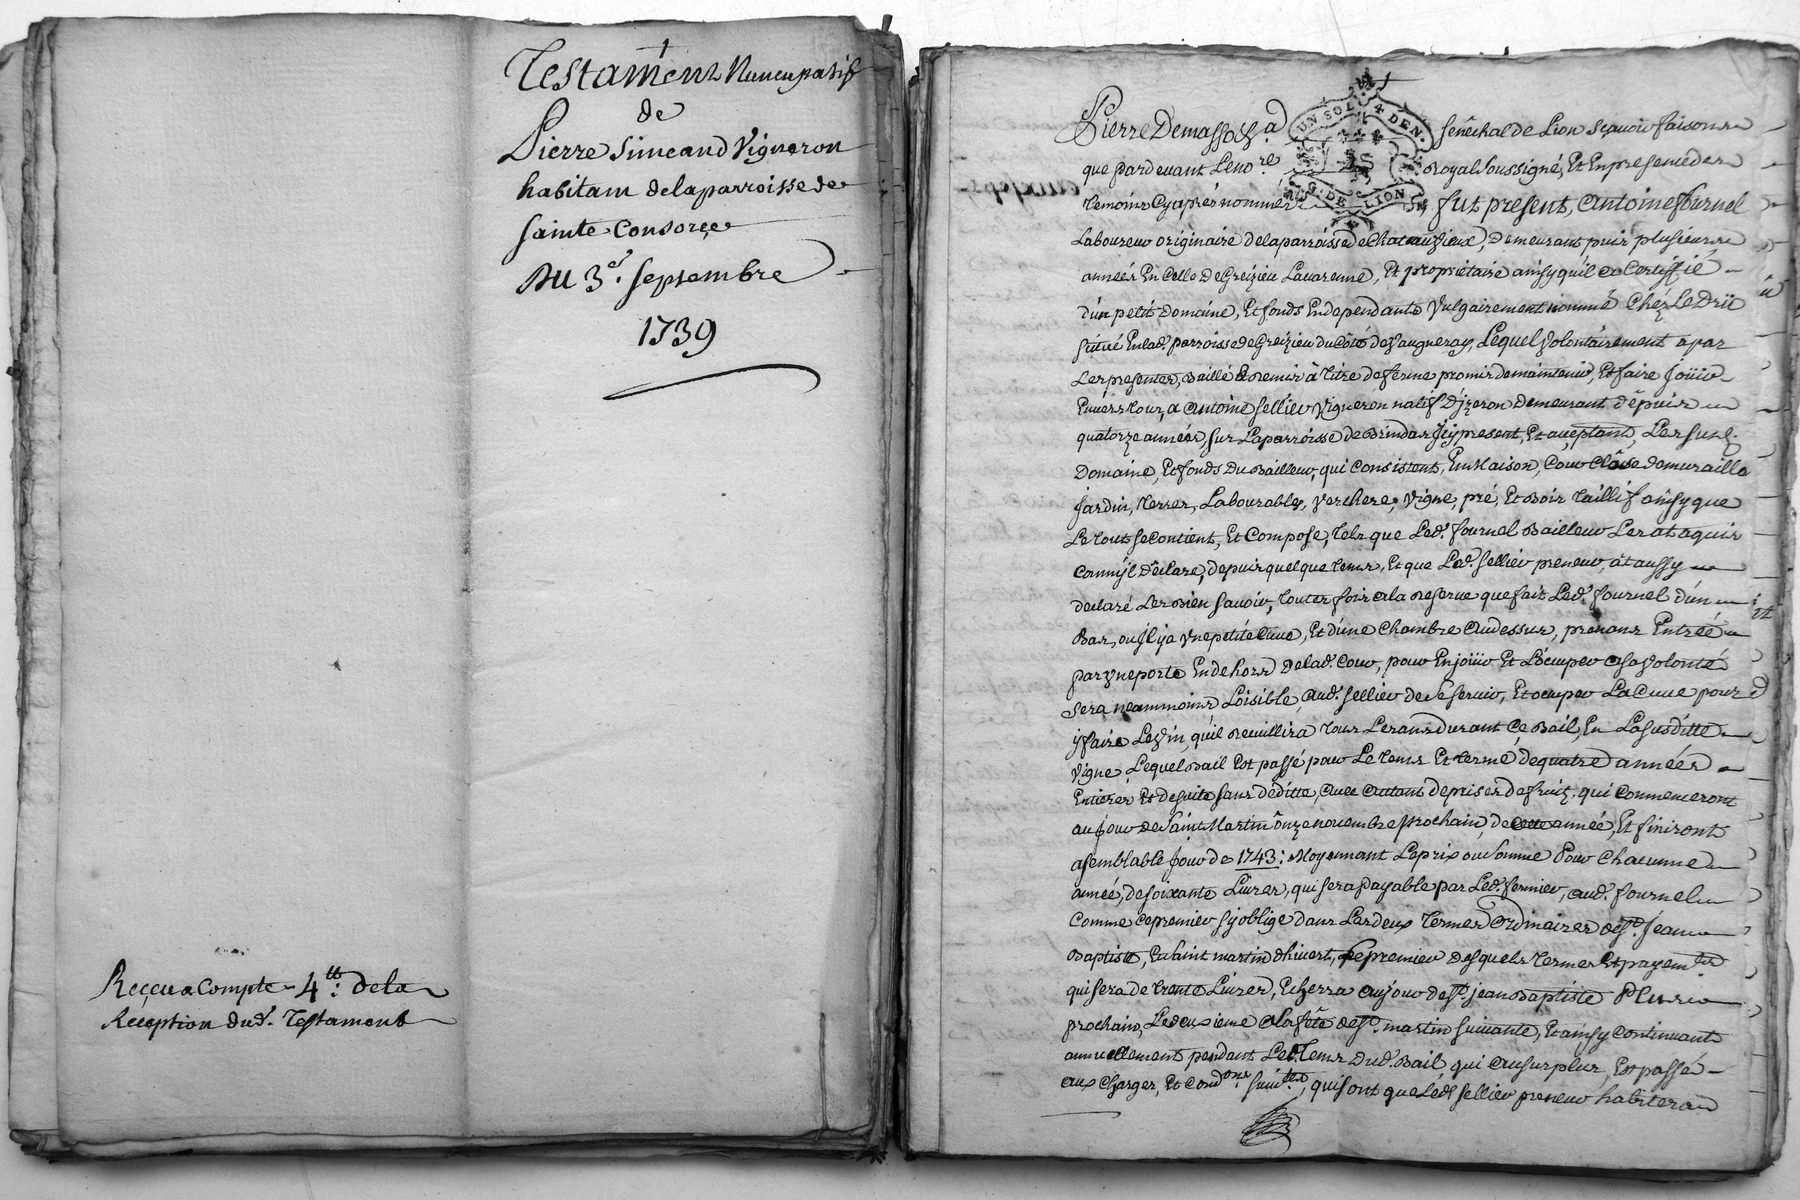 Testament Nuncupatif
de
Pierre Simeand Vigneron
habitant delaparroisse de
sainte Consorce
Du 3e. septembre
1739
Reçeu a Compte 4tt: dela
Reception dud. Testament
Pierre Demassoz a
UN SOL 4 DEN.
G. DE LION
Sénéchal de Lion sçavoir faisons
que pardevant Leno.re Royal soussigné, Et En presence des
temoins Cyaprés nommés fut present, Antoine fournel
Laboureur originaire delaparroisse de Chateauvieux, Demeurant, puis plusieurs
années En Celle De Greizieu Lavarenne, Et proprietaire ainsy quil a Certiffié
d'un petit Domaine, Et fonds En dependants Vulgairement nommé Chez Le Drü
situé En lad. parroisse de Greizieu du Côté de Vaugneray, Lequel Volontairement a par
Les presentes, Baillé Et remis à titre de ferme promis demaintenir, Et faire Joüir
Envers tous, a Antoine sellier Vigneron natif D'jzeron Demeurant depuis
quatorze années, sur Laparroisse de Brindas Jcy present, Et acceptant, Les susd.
Domaine, Et fonds Du Bailleur, qui Consistent, En Maison, Cour Clôise de muraille
Jardin, Terres, Labourables, Verchere, Vigne, pré, Et Bois taillif ainsy que
Le tout se Contient, Et Compose, tels que Led. fournel Bailleur Les at aquis
Comm'jl Déclare, depuis quelque tems, Et que Led. sellier preneur, at aussy
declaré Les Bien sçavoir, toutes fois a la Reserve que fait Led. fournel d'un
Bas, ou Jl ja Vne petite Cuve, Et d'une Chambre Audessus, prenans Entrée
par Vne porte En dehors Delad. Cour, pour En joüir Et L'ocuper a sa Volonté
sera neammoins Loisible, Aud. sellier de se servir, Et ocuper La Cuve pour
ÿ faire Le Vin, qu'il Recuillira tous Les ans durant Ce Bail, En La susditte
Vigne, Lequel Bail Est passé pour Le tems Et terme de quatre années
Entieres Et de suite sans déditte, avec Autant de prises de fruitz, qui Commenceront
au Jour de Saint Martin Onze novembre prochain, de Cette année, Et finiront
a semblable Jour de 1743: Moyennant Leprix ou somme Pour Chacunne
année, de soixante Livres, qui sera payable par Led. fermier, aud. fournel
Comme Ce premier s'y oblige dans Les deux termes Ordinaires de St. Jean
Baptiste, Et saint martin d'hivert, Le premier Desquels termes Et payem.ts
qui sera de trente Livres, Echerra Au Jour de St. jean Baptiste Plus
prochain, Le deuxieme A la fête de St. martin suivante, Et ainsy Continuant
annuellement pendant Led. tems Dud. Bail qui Au surplus, Est passé
aux Charges, Et Cond.ons suiv.tes, qui sont que Led. sellier preneur habitera